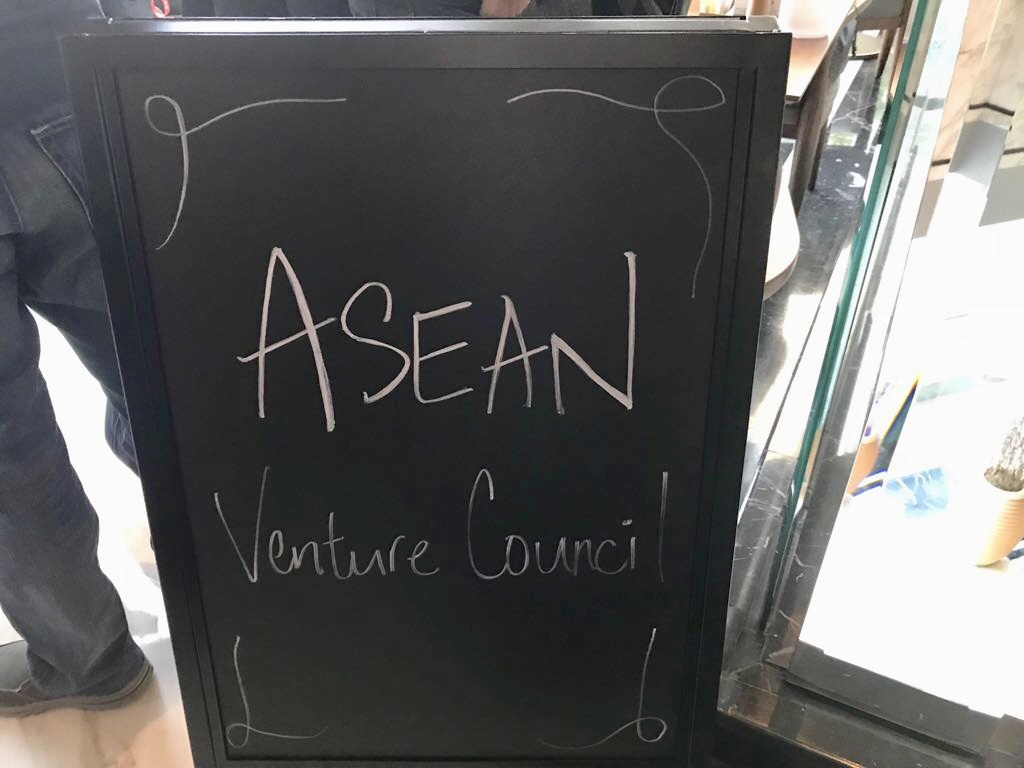 ASEAN
Venture Council